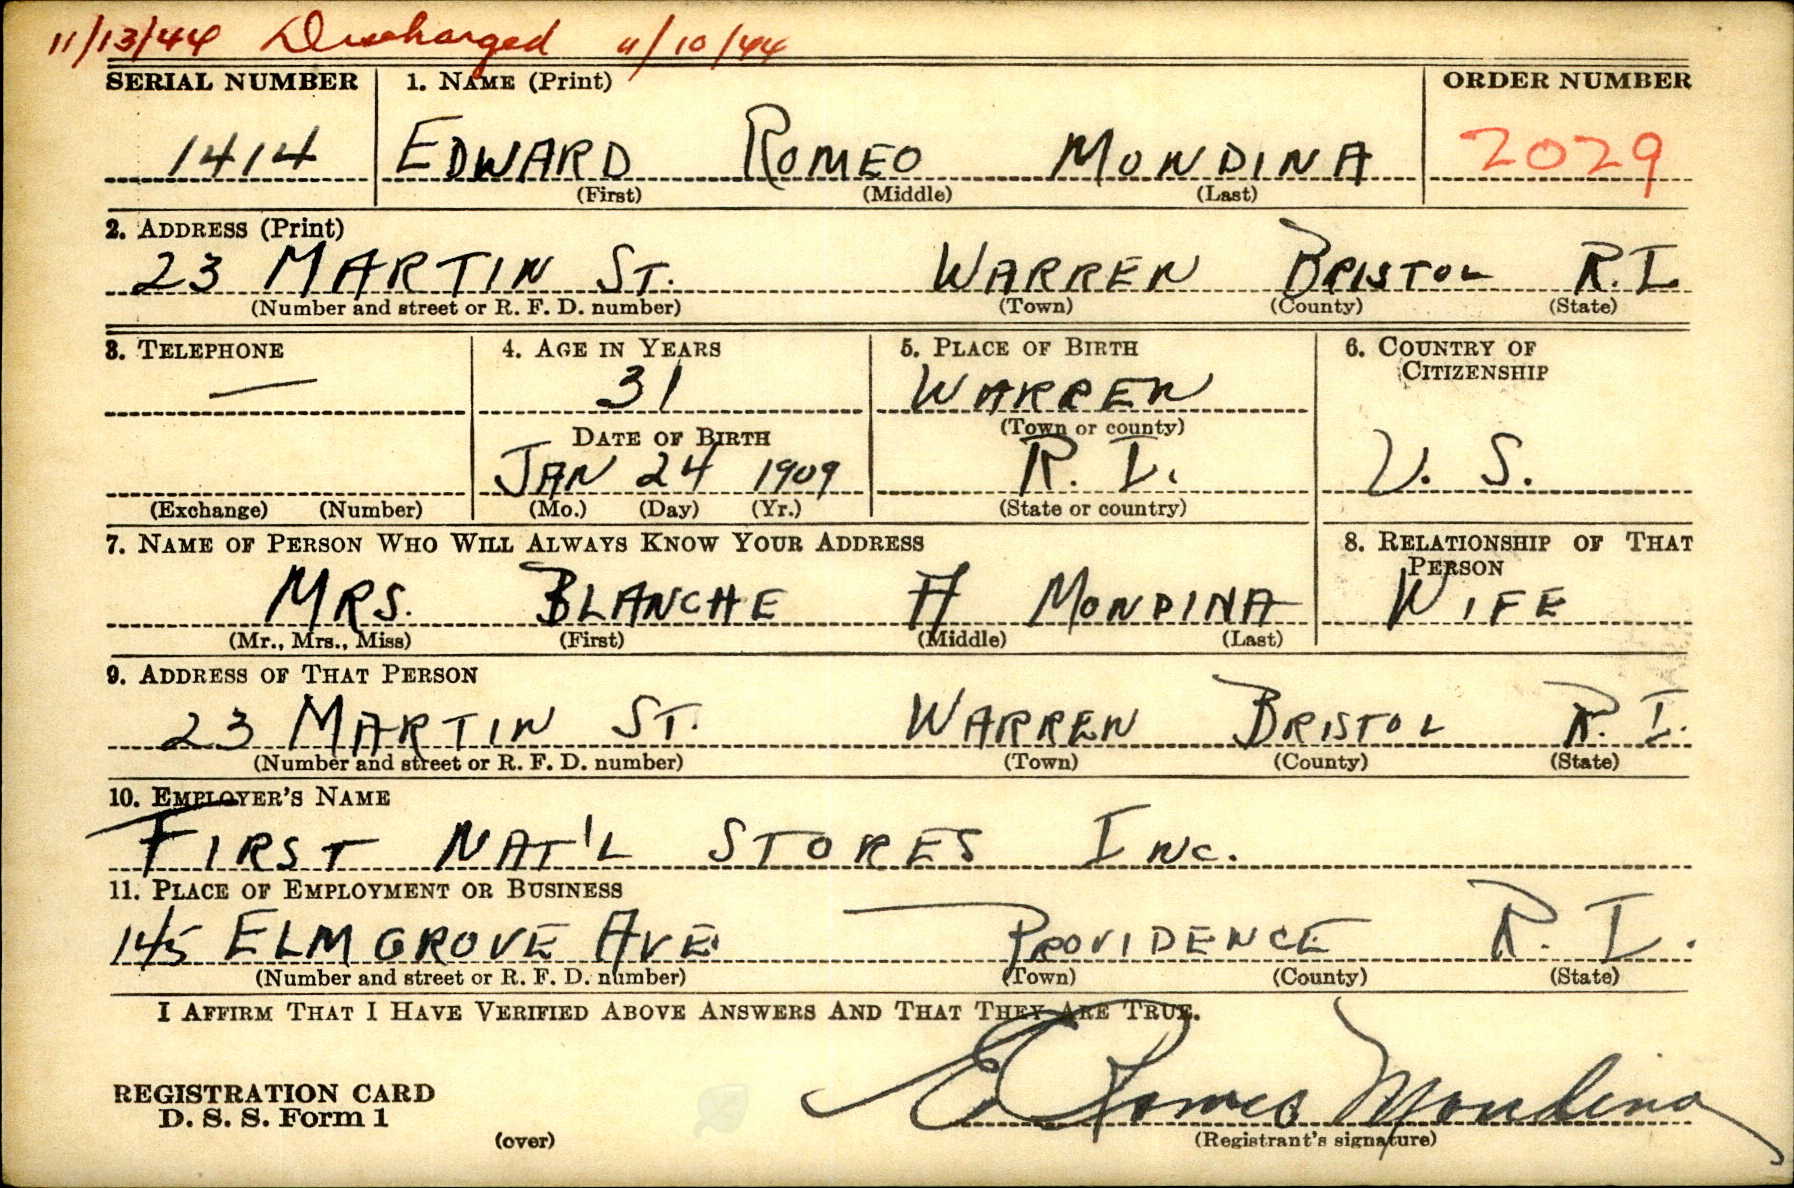 11/13/44 Discharged 11/10/44
SERIAL NUMBER 1. NAME (Print) ORDER NUMBER
1414 EDWARD ROMEO MONDINA 2029
(First) (Middle) (Last)
2. ADDRESS (Print)
23 MARTIN ST. WARREN BRISTOL R.I.
(Number and street or R. F. D. number) (Town) (County) (State)
3. TELEPHONE 4. AGE IN YEARS 5. PLACE OF BIRTH 6. COUNTRY OF
CITIZENSHIP
— 31 WARREN
(Town or county)
DATE OF BIRTH
JAN 24 1909 R. I. U. S.
(Exchange) (Number) (Mo.) (Day) (Yr.) (State or country)
7. NAME OF PERSON WHO WILL ALWAYS KNOW YOUR ADDRESS 8. RELATIONSHIP OF THAT
PERSON
MRS. BLANCHE A MONDINA WIFE
(Mr., Mrs., Miss) (First) (Middle) (Last)
9. ADDRESS OF THAT PERSON
23 MARTIN ST. WARREN BRISTOL R. I.
(Number and street or R. F. D. number) (Town) (County) (State)
10. EMPLOYER'S NAME
FIRST NAT'L STORES INC.
11. PLACE OF EMPLOYMENT OR BUSINESS
145 ELMGROVE AVE PROVIDENCE R. I.
(Number and street or R. F. D. number) (Town) (County) (State)
I AFFIRM THAT I HAVE VERIFIED ABOVE ANSWERS AND THAT THEY ARE TRUE.
REGISTRATION CARD
D. S. S. Form 1 E Romeo Mondina
(over) (Registrant's signature)